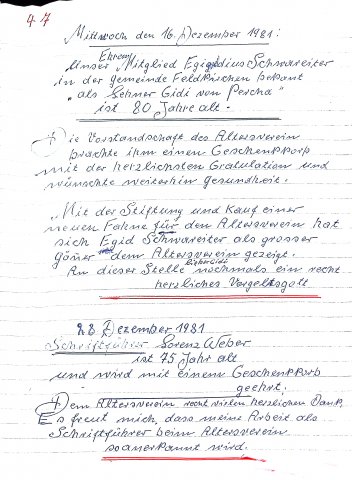 47
Mittwoch den 16. Dezember 1981:
Ehren
Unser Mitglied Egidius Schwareiter
in der gemeinde Feldkirchen bekant
"als Sehner Gidi von Percha"
ist 80 Jahre alt.
Die Vorstandschaft des Altersverein
brachte ihm einen Geschenkkorp
mit der herzlichsten Gratulation und
wünschte weiterhin gesundheit.
"Mit der Stiftung und Kauf einer
neuen Fahne für den Altersverein hat
sich Egid Schwareiter als grosser
gönner dem Altersverein gezeigt.
lieber Gidi
An dieser Stelle nochmals ein recht
herzliches Vergeltsgott
28 Dezember 1981
Schriftführer Lorenz Weber
ist 75 Jahr alt
und wird mit einem Geschenkkorb
geehrt.
Dem Altersverein recht vielen herzlichen Dank,
Es freut mich, dass meine Arbeit als
Schriftführer beim Altersverein
so anerkannt wird.